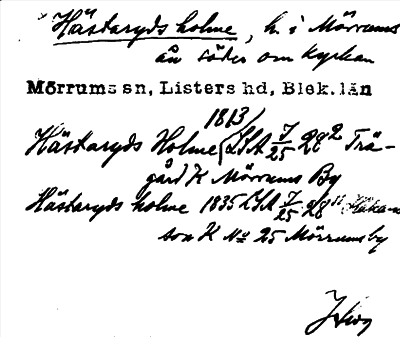 Hästaryds holme, h. i Mörrums
ån söder om kyrkan
Mörrums sn, Listers hd, Blek. län
1813
Hästaryds Holme (LSA I/25 28² Trä-
gård K Mörrums By
Hästaryds holme 1835 LSA I/25 28¹¹ Håkans-
son K No 25 Mörrums by